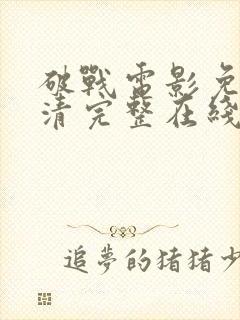 破戰電影免
清完整在綫
追夢的猪猪少